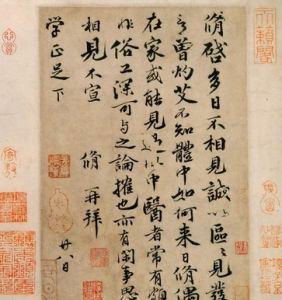 脩啓多日不相見誠以區區見發
言曾灼艾不知體中如何來日脩偶
在家或能見過此中醫者常有頗
非俗工深可與之論榷也亦有閑事思
相見不宣 脩再拜 廿八日
学正足下